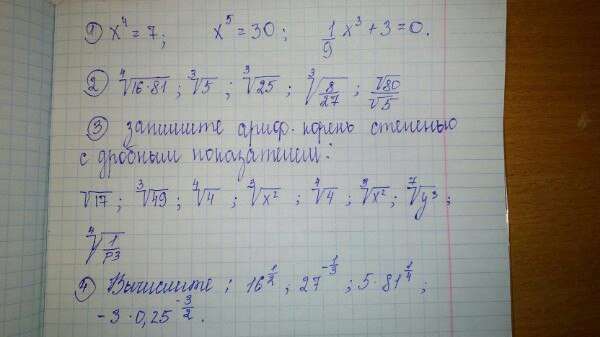 ① x⁴ = 7; x⁵ = 30; 1/9 x³ + 3 = 0.
② ⁴√(16·81); ³√5; ³√25; ³√(8/27); √80/√5
③ запишите ариф. корень степенью
с дробным показателем:
√17; ³√49; ⁴√4; ³√x²; ⁴√4; ⁸√x²; ⁷√y³;
⁴√(1/p3)
④ Вычислите: 16^(1/2); 27^(-1/3); 5·81^(1/4);
-3·0,25^(-3/2).